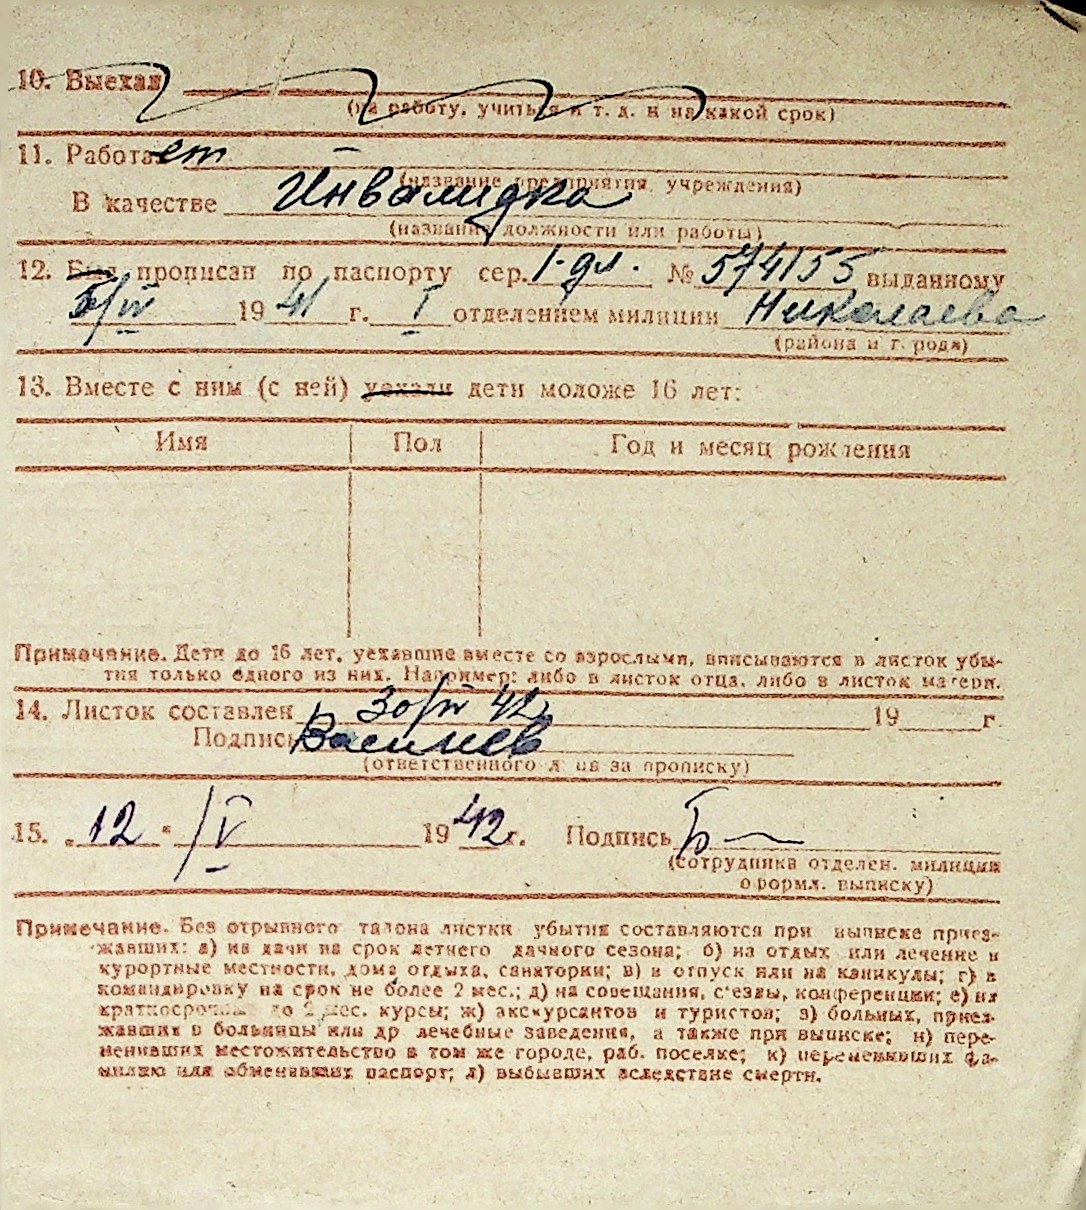 10. Выехал
(на работу, учиться и т. д. и на какой срок)
11. Работает —
(название предприятия, учреждения)
В качестве Инвалидка
(название должности или работы)
12. Был прописан по паспорту сер. 1-дл. № 574155 выданному
5/IV 1941 г. I отделением милиции Николаева
(района и города)
13. Вместе с ним (с ней) уехали дети моложе 16 лет:
Имя Пол Год и месяц рождения
Примечание. Дети до 16 лет, уехавшие вместе со взрослыми, вписываются в листок убы-
тия только одного из них. Например: либо в листок отца, либо в листок матери.
14. Листок составлен 30/IV 42 19 г.
Подпись Василев
(ответственного лица за прописку)
15. „12“ /V 1942 г. Подпись Б
(сотрудника отделен. милиции
оформл. выписку)
Примечание. Без отрывного талона листки убытия составляются при выписке приез-
жавших: а) на дачи на срок летнего дачного сезона; б) на отдых или лечение в
курортные местности, дома отдыха, санатории; в) в отпуск или на каникулы; г) в
командировку на срок не более 2 мес.; д) на совещания, с'езды, конференции; е) на
краткосрочные до 2 мес. курсы; ж) экскурсантов и туристов; з) больных, приез-
жавших в больницы или др лечебные заведения, а также при выписке; и) пере-
менивших местожительство в том же городе, раб. поселке; к) переменивших фа-
милию или обменявших паспорт; л) выбывших вследствие смерти.